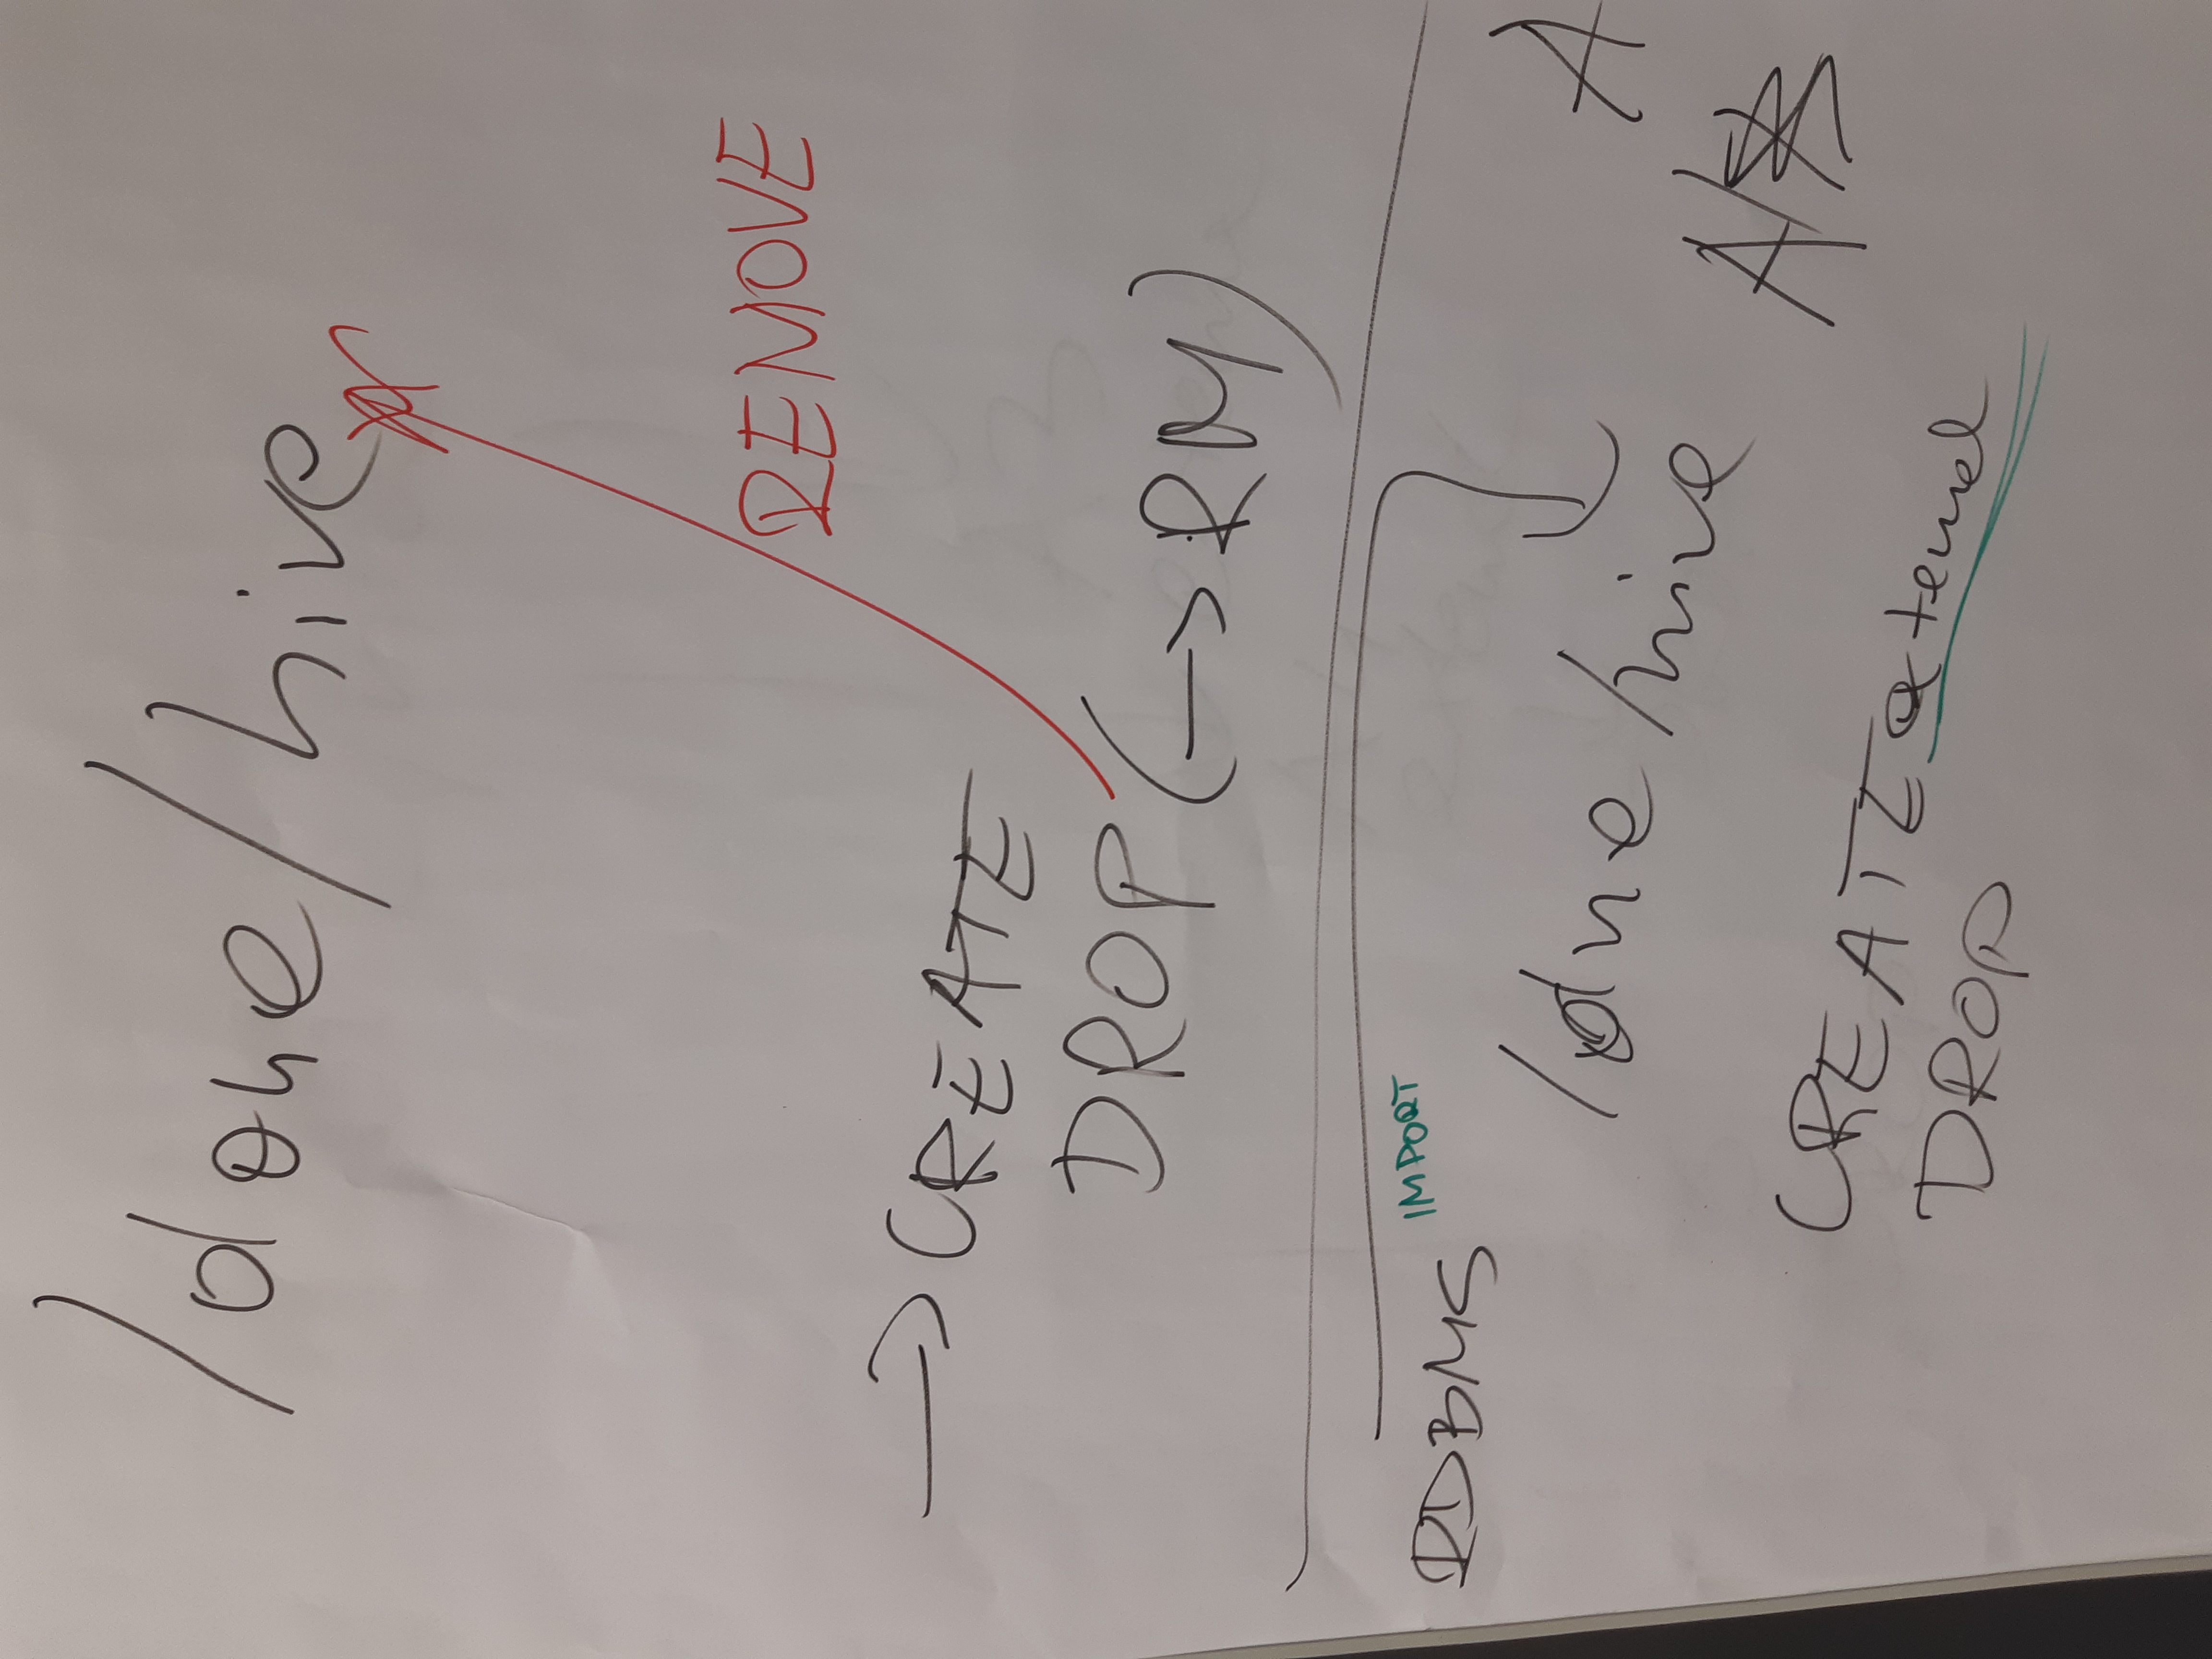 /done/hive
REMOVE
→ CREATE
DROP (→ RM)
RDBMS IMPORT
/dne/hive
A
A/B
CREATE external
DROP